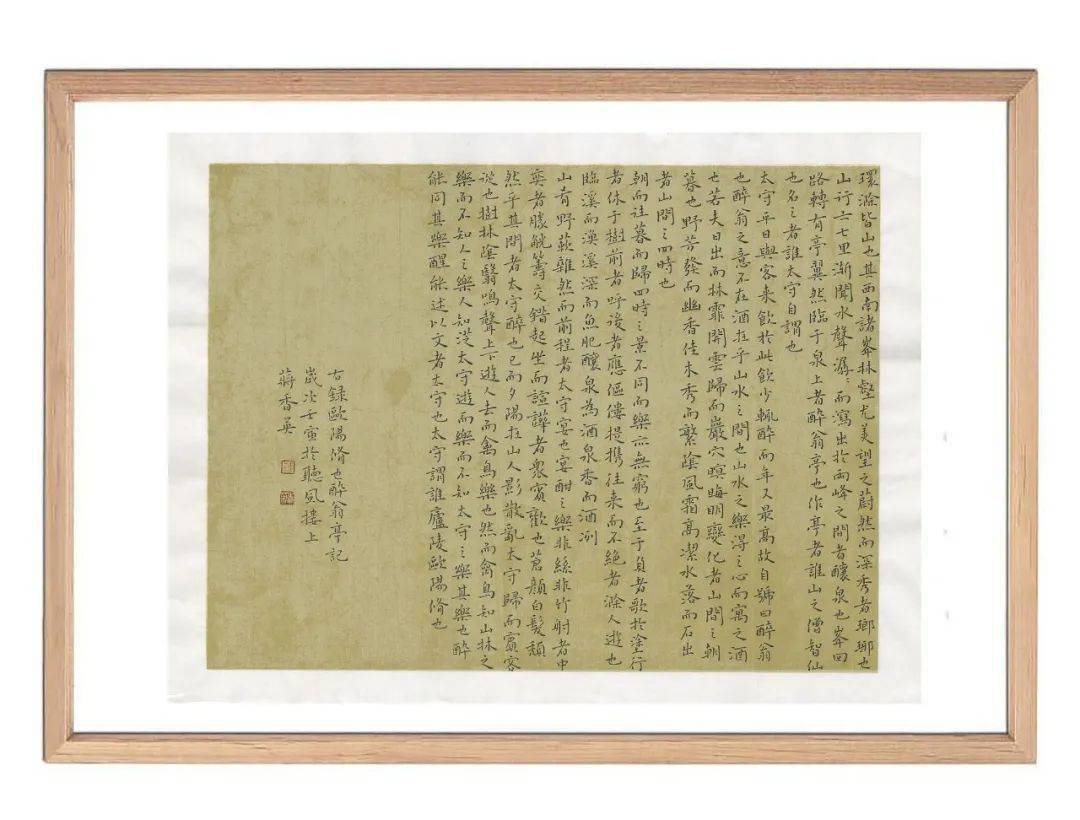 環滁皆山也其西南諸峯林壑尤美望之蔚然而深秀者瑯瑘也
山行六七里漸聞水聲潺〻而瀉出於兩峰之間者釀泉也峯回
路轉有亭翼然臨于泉上者醉翁亭也作亭者誰山之僧智仙
也名之者誰太守自謂也
太守平日與客来飲於此飲少輒醉而年又最髙故自號曰醉翁
也醉翁之意不在酒在乎山水之間也山水之樂得之心而寓之酒
也若夫日出而林霏開雲歸而巖穴暝晦明變化者山間之朝
暮也野芳發而幽香佳木秀而繁蔭風霜髙潔水落而石出
者山間之四時也
朝而往暮而歸四時之景不同而樂亦無窮也至于負者歌於塗行
者休于樹前者呼後者應傴僂提携往来而不絕者滁人遊也
臨溪而漁溪深而魚肥釀泉為酒泉香而酒冽
山肴野蔌雜然而前程者太守宴也宴酣之樂非絲非竹射者中
奕者勝觥籌交錯起坐而諠譁者衆賓歡也蒼顏白髮頹
然乎其間者太守醉也已而夕陽在山人影散亂太守歸而賓客
從也樹林蔭翳鳴聲上下遊人去而禽鳥樂也然而禽鳥知山林之
樂而不知人之樂人知從太守遊而樂而不知太守之樂其樂也醉
能同其樂醒能述以文者太守也太守謂誰廬陵歐陽脩也
右錄歐陽脩也醉翁亭記
歲次壬寅於聽風樓上
蔣香英